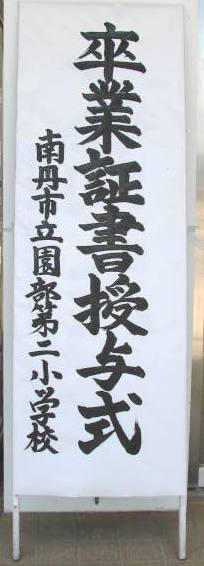 卒業証書授与式
南丹市立園部第二小学校